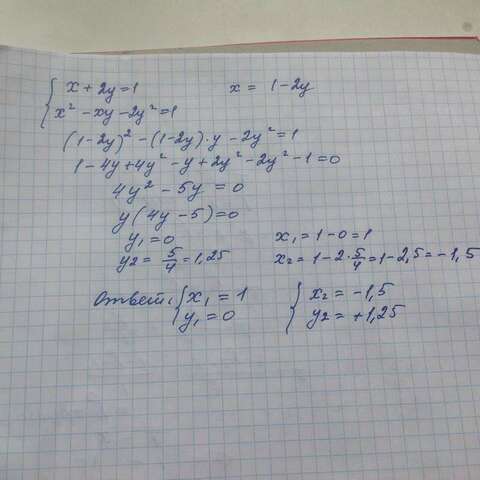 { x + 2y = 1    x = 1 - 2y
x² - xy - 2y² = 1
(1-2y)² - (1-2y)·y - 2y² = 1
1 - 4y + 4y² - y + 2y² - 2y² - 1 = 0
4y² - 5y = 0
y(4y - 5) = 0
y₁ = 0    x₁ = 1 - 0 = 1
y2 = 5/4 = 1,25    x₂ = 1 - 2·5/4 = 1 - 2,5 = -1,5
Ответ: { x₁ = 1    { x₂ = -1,5
y₁ = 0    y2 = +1,25